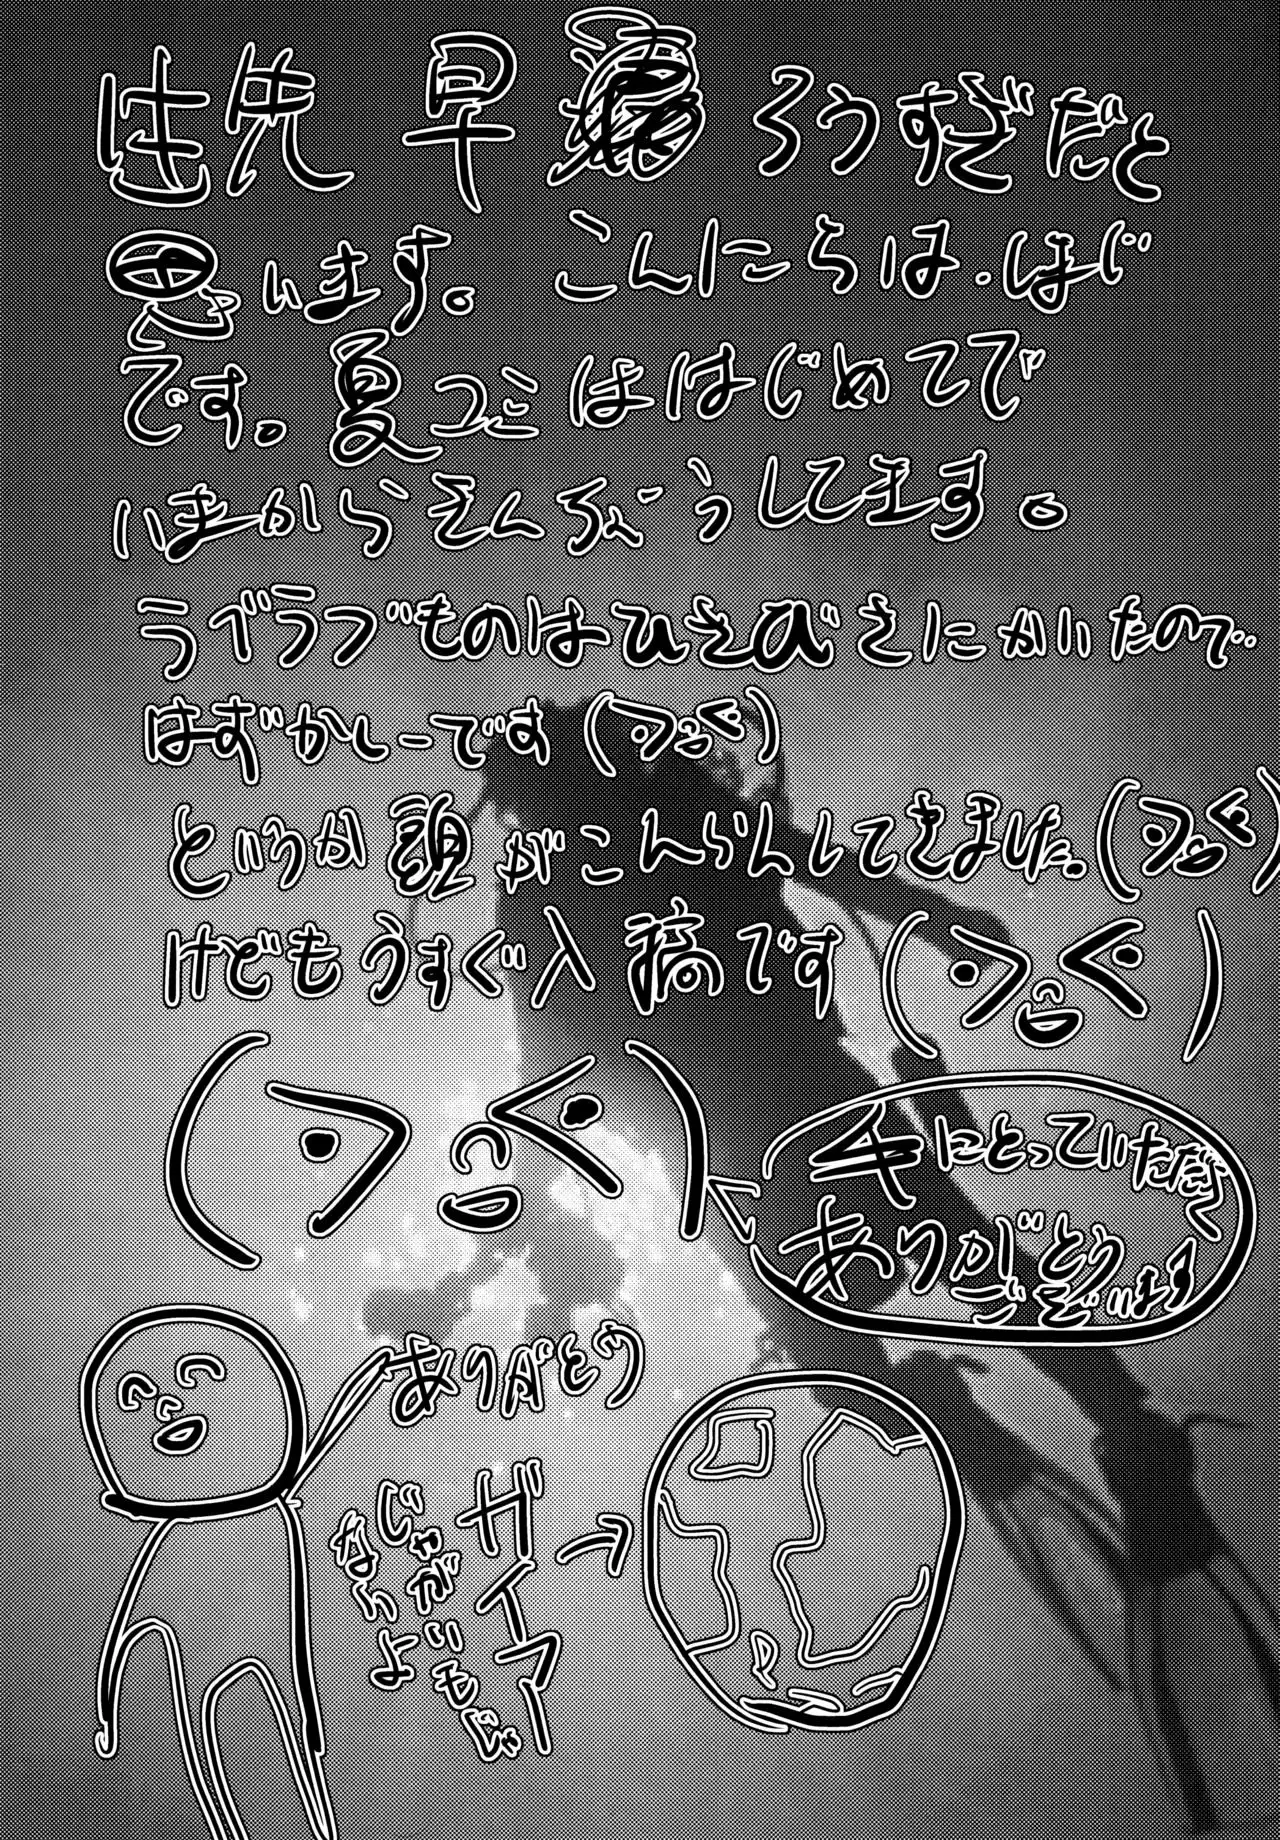 早 ろうすぎだと
思います。こんにちは。はじ
です。夏コミははじめてで
いまからぞんぶうしてます。
ラブラブものはひさびさにかいたので
はずかしーです
というか頭がこんらんしてきました。
けどもうすぐ入稿です
手にとっていただく
ありがとう
ございます
ありがとう
ガイアー
じゃがいもじゃ
ないよ